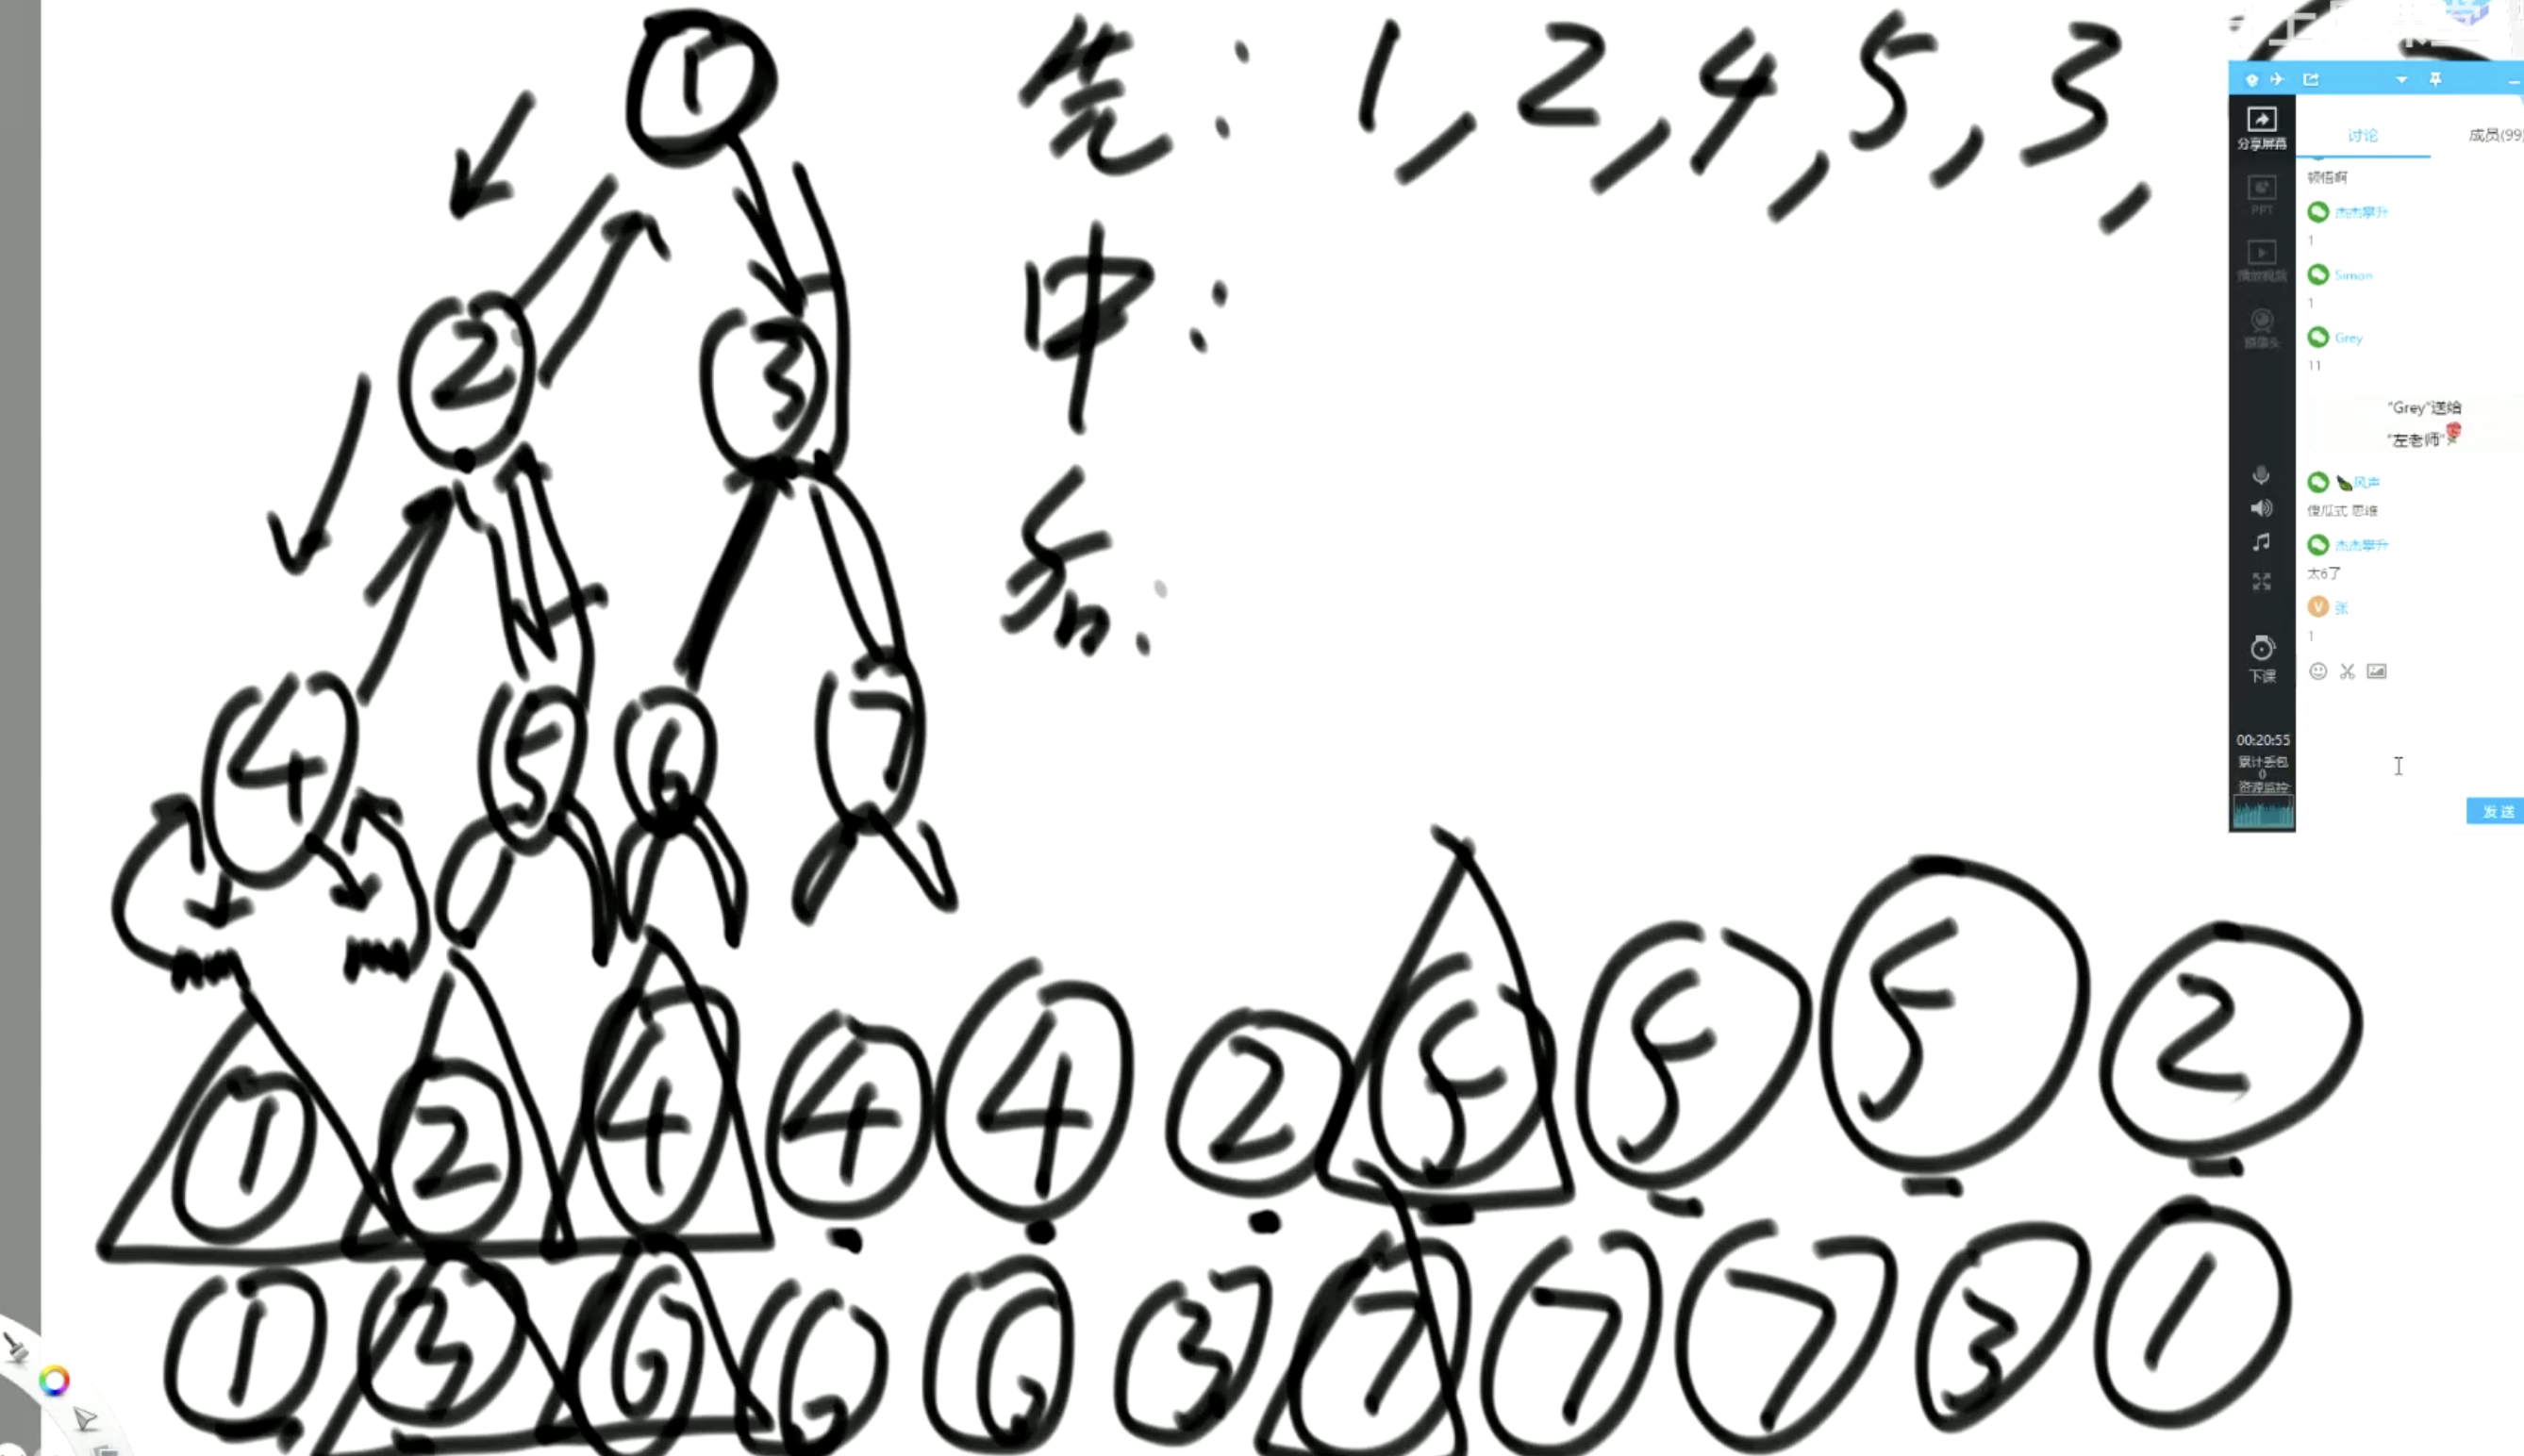 先: 1, 2, 4, 5, 3,
中:
后:
1
2 3
4 5 6 7
1 2 4 4 4 2 5 5 5 2
1 3 6 6 6 3 7 7 7 3 1
分享屏幕
PPT
播放视频
摄像头
下课
00:20:55
累计丢包
0
资源监控
讨论 成员(99
顿悟啊
杰杰攀升
1
Simon
1
Grey
11
"Grey"送给
"左老师"
风声
傻瓜式 思维
杰杰攀升
太6了
V 张
1
发送